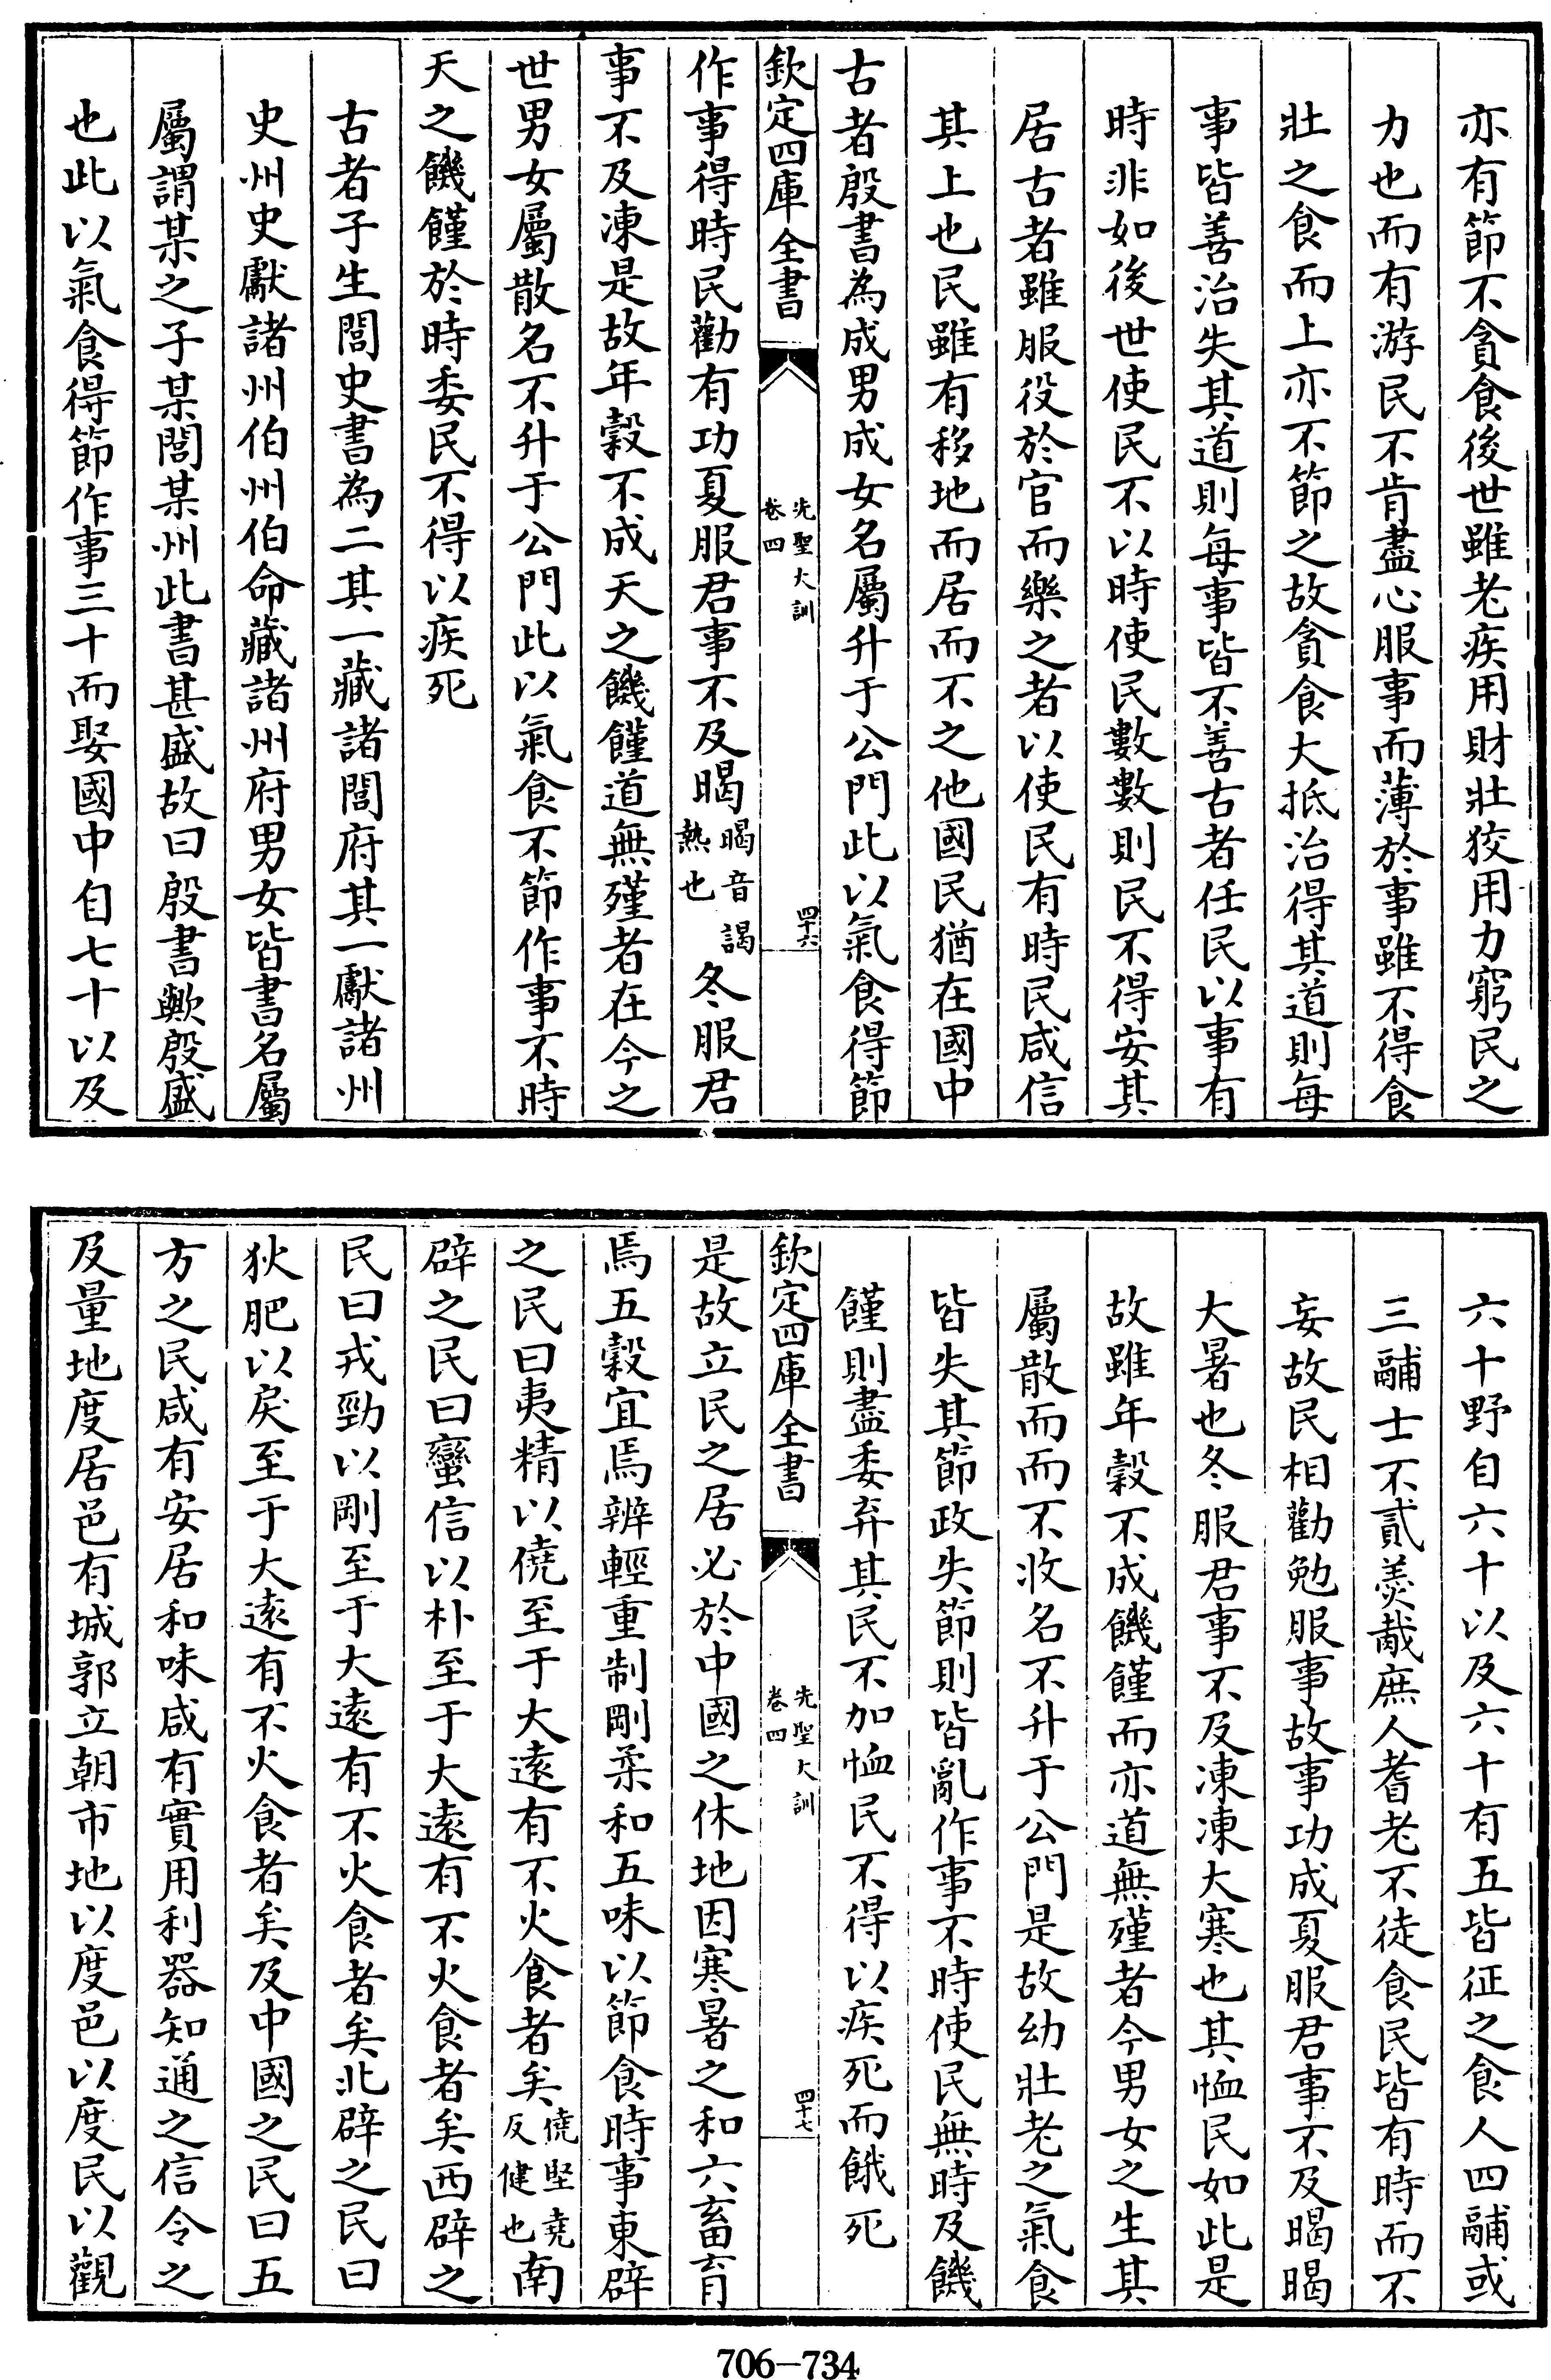 亦有節不貪食後世雖老疾用財壯狡用力窮民之
力也而有游民不肯盡心服事而薄於事雖不得食
壯之食而上亦不節之故貪食大抵治得其道則每
事皆善治失其道則每事皆不善古者任民以事有
時非如後世使民不以時使民數數則民不得安其
居古者雖服役於官而樂之者以使民有時民咸信
其上也民雖有移地而居而不之他國民猶在國中
古者殷書為成男成女名屬升于公門此以氣食得節
欽定四庫全書 先聖大訓 卷四 四十六
作事得時民勸有功夏服君事不及暍暍音謁熱也冬服君
事不及凍是故年穀不成天之饑饉道無殣者在今之
世男女屬散名不升于公門此以氣食不節作事不時
天之饑饉於時委民不得以疾死
古者子生閭史書為二其一藏諸閭府其一獻諸州
史州史獻諸州伯州伯命藏諸州府男女皆書名屬
屬謂某之子某閭某州此書甚盛故曰殷書歟殷盛
也此以氣食得節作事三十而娶國中自七十以及
六十野自六十以及六十有五皆征之食人四鬴或
三鬴士不貳羮胾庶人耆老不徒食民皆有時而不
妄故民相勸勉服事故事功成夏服君事不及暍暍
大暑也冬服君事不及凍凍大寒也其恤民如此是
故雖年穀不成饑饉而亦道無殣者今男女之生其
屬散而而不收名不升于公門是故幼壯老之氣食
皆失其節政失節則皆亂作事不時使民無時及饑
饉則盡委弃其民不加恤民不得以疾死而餓死
欽定四庫全書 先聖大訓 卷四 四十七
是故立民之居必於中國之休地因寒暑之和六畜育
焉五穀宜焉辨輕重制剛柔和五味以節食時事東辟
之民曰夷精以僥至于大遠有不火食者矣僥堅堯反健也南
辟之民曰蠻信以朴至于大遠有不火食者矣西辟之
民曰戎勁以剛至于大遠有不火食者矣北辟之民曰
狄肥以戾至于大遠有不火食者矣及中國之民曰五
方之民咸有安居和味咸有實用利器知通之信令之
及量地度居邑有城郭立朝市地以度邑以度民以觀
706-734